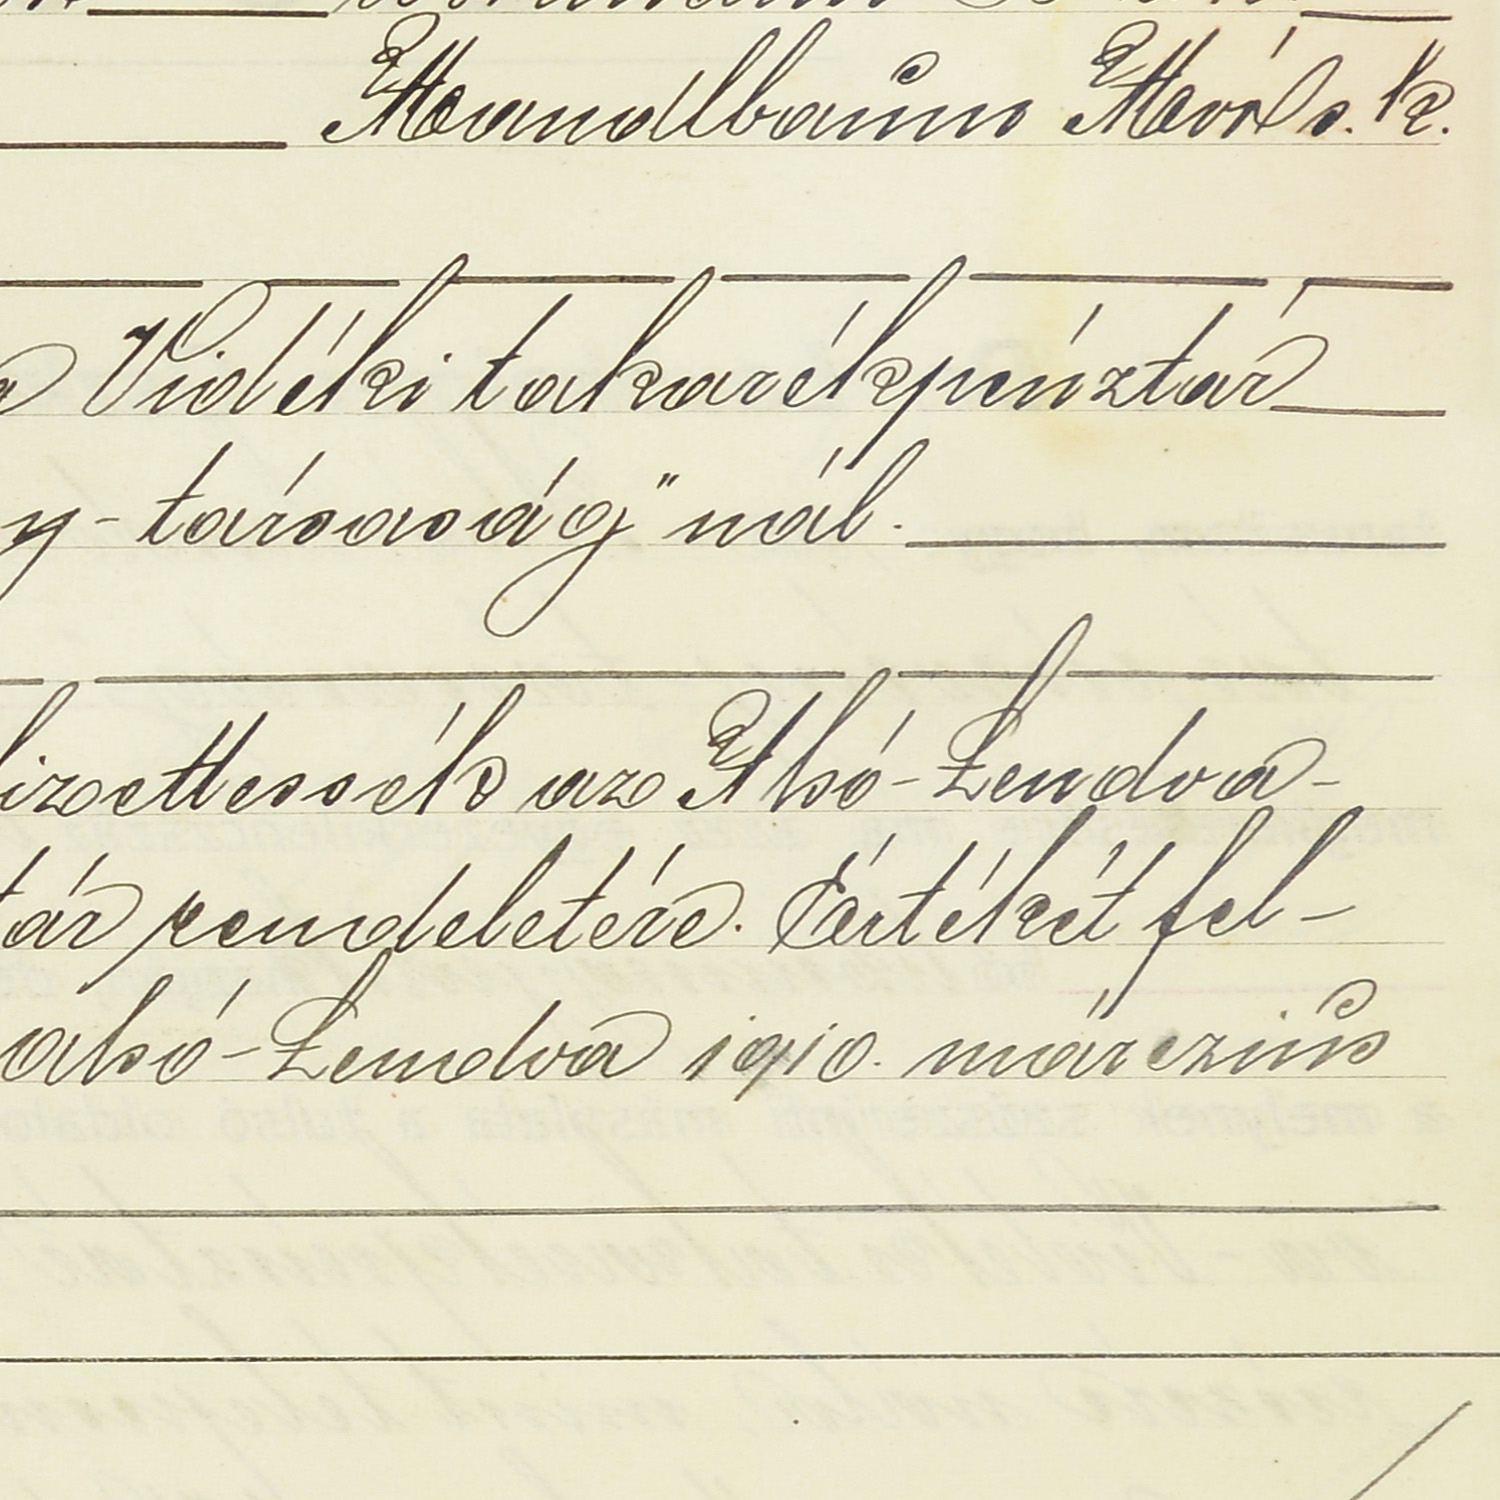 Mandlbaum Mór s. k.
a Vidéki takarékpénztár
y-társaság" nál.
fizettessék az Alsó-Lendva-
tár rendeletére. Értékét fel-
alsó-Lendva 1910. márczius